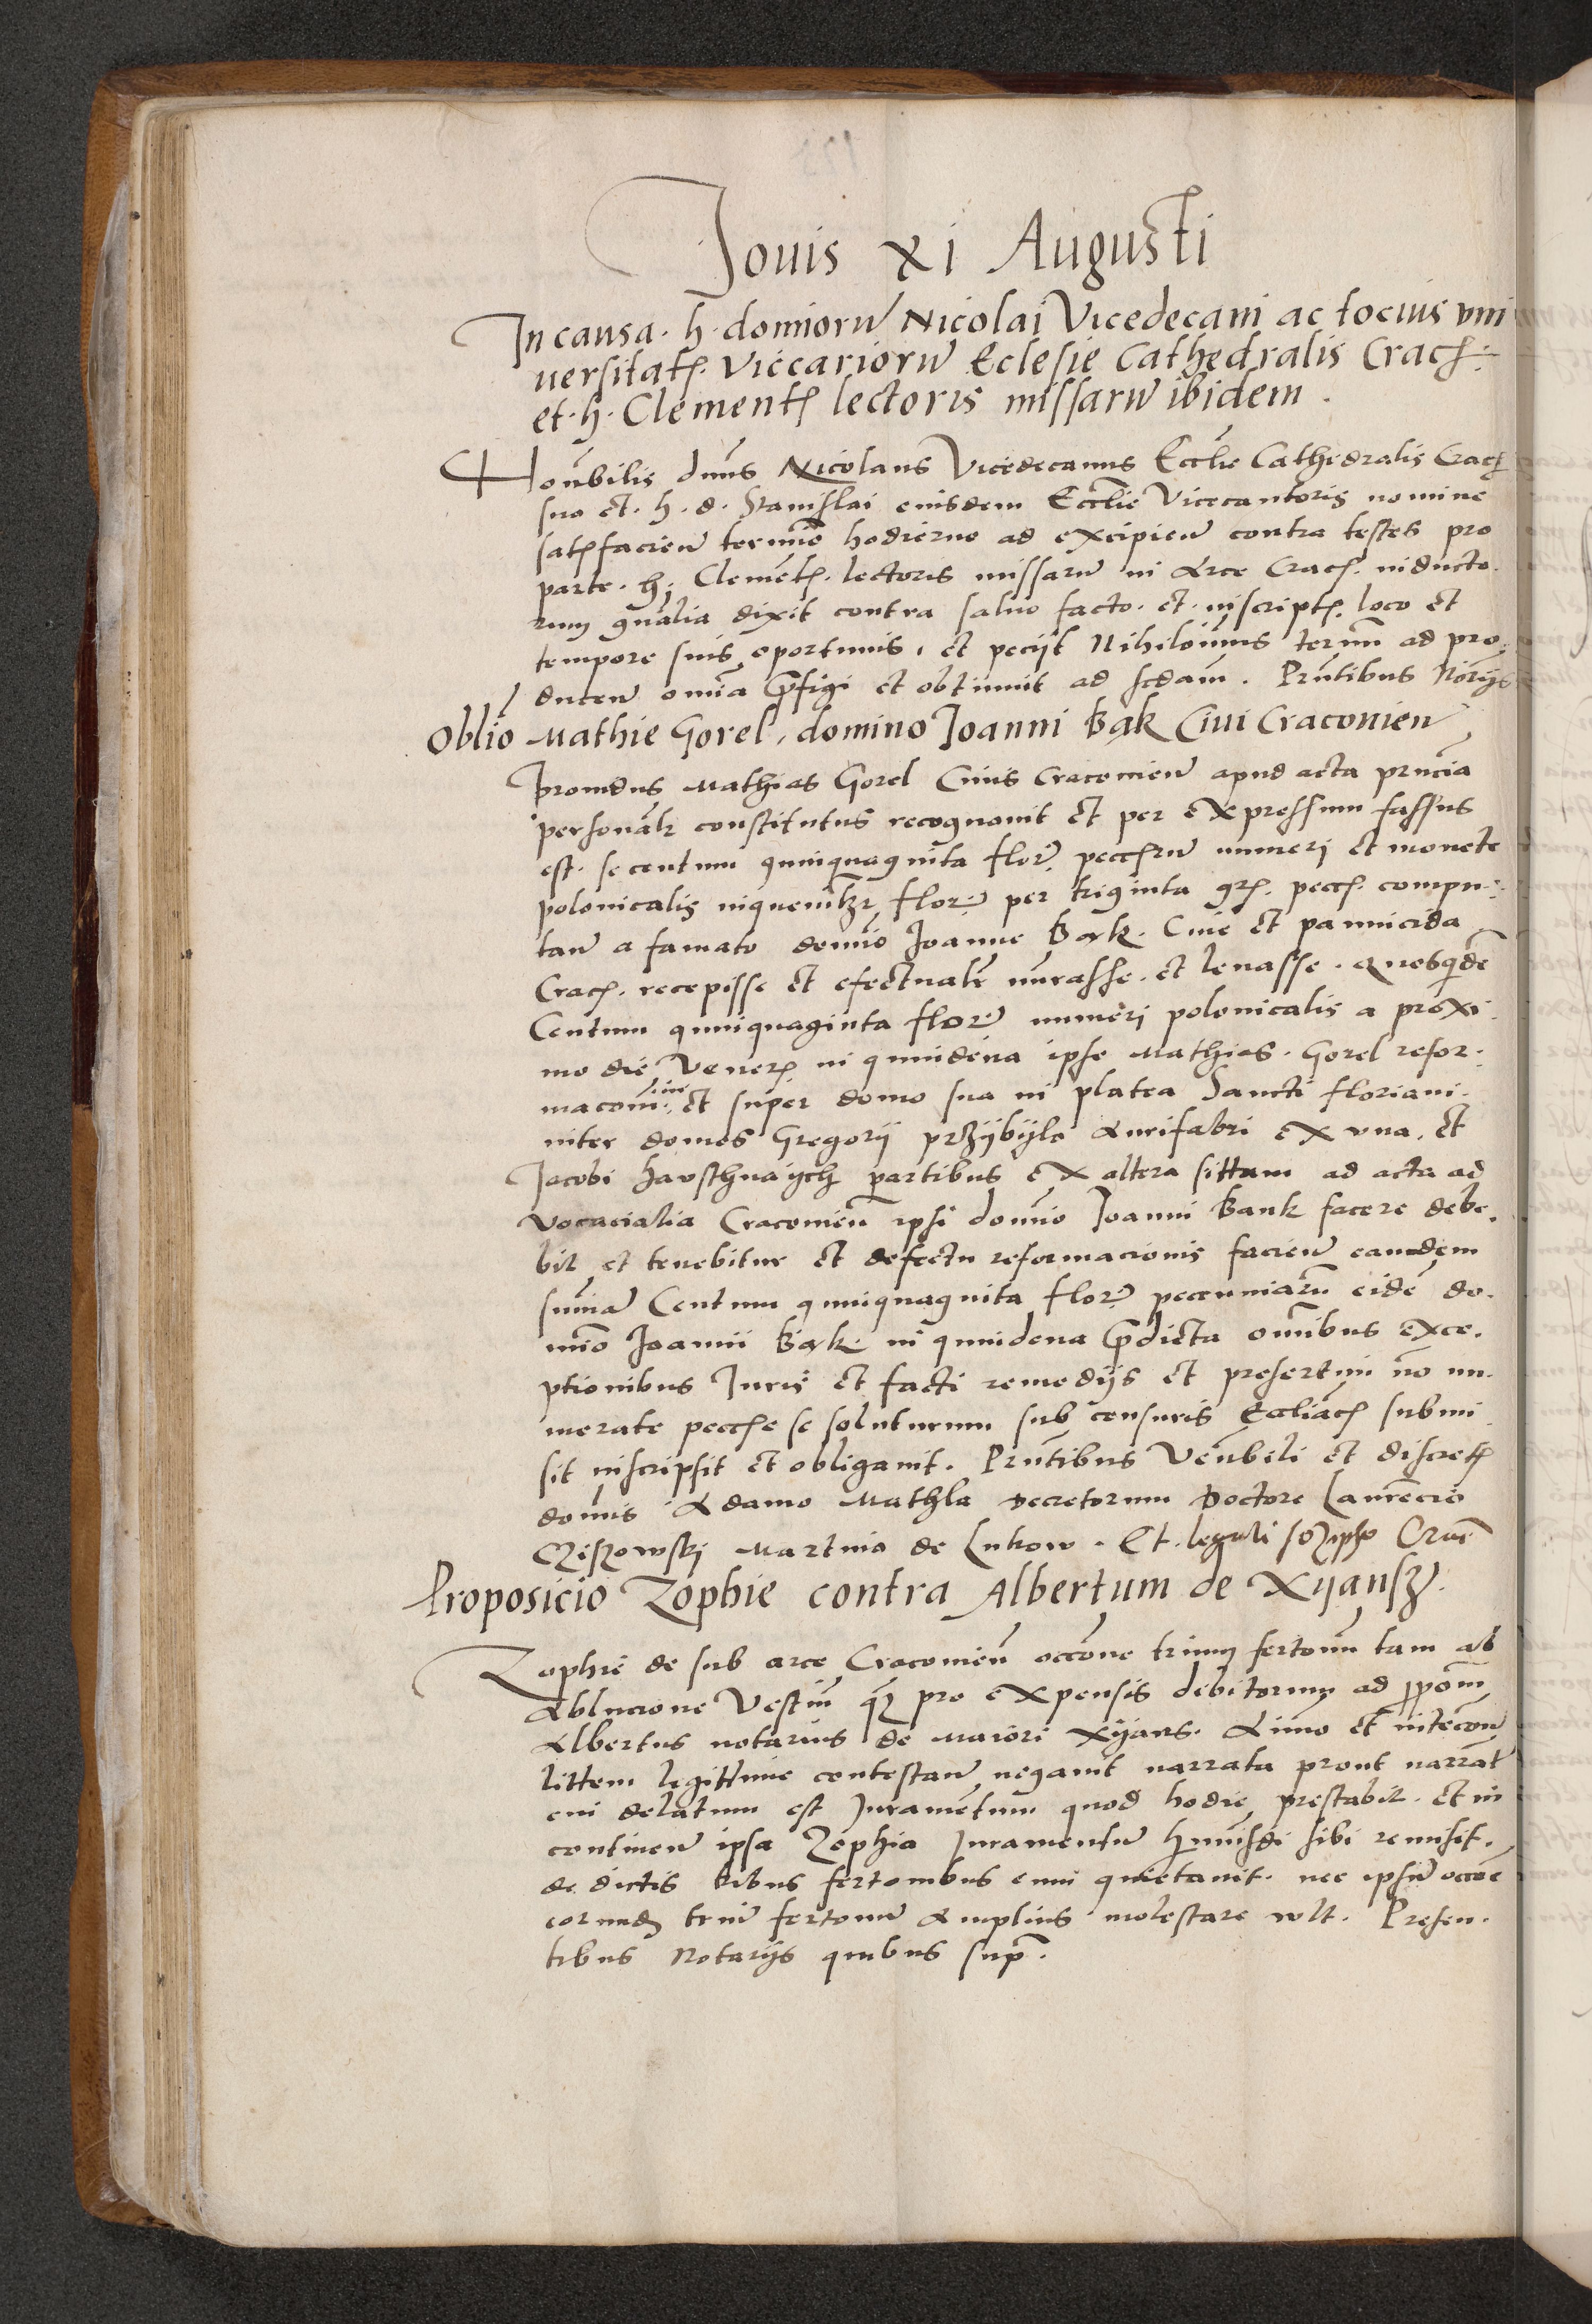 Jouis xi Augusti
In causa · h · domiorũ Nicolai Vicedecani ac tocius vni
uersitatʒ Viccariorũ Eclesie Cathedralis Cracʒ
et · h · Clementʒ lectoris missarũ ibidem ·
Honͦbilis dnũs Nicolaus Vicedecanus Ecclie Cathedralis Cracʒ
suo et · h · d · Stanislai eiusdem Ecclie Vicecantoris nomine
satʒfacieñ termio hodierno ad excipieñ contra testes pro
parte · h · Clementʒ lectoris missarũ in Arce Cracʒ inducto ·
rum gñalia dixit contra saluo facto · et · in scriptʒ loco et
tempore suis oportunis, et pecijt Nihilomĩus termĩ ad pro ·
duceñ omĩa p̃figi et obtinuit ad scdam · Prñtibus Norijs
Oblio Mathie Gorel, domino Joanni Bąk Ciui Craconieñ
Prouidus Mathias Gorel Ciuis Craconieñ apud acta prñcia
personalr constitutus recognouit et per expressum fassus
est · se centum quinquaginta flor̃ peccʒrũ numeri et monete
polonicalis inquemlʒ flor̃ per triginta grʒ · peccʒ · compu ·
tañ a famato domio Joanne Bąk · Ciue et pannicida
Cracʒ · recepisse et efectualr nũrasse · et leuasse · quosquidẽ
Centum quinquaginta flor̃ numeri polonicalis a proxi ·
mo die Venerʒ in quindena ipse Mathias · Gorel refor ·
macom̃ · in et super domo sua in platea Sancti floriani ·
inter domos Gregorij przijbijlo Aurifabri ex vna, et
Jacobi partibus ex altera sittam ad acta ad
vocacialia Craconieñ ipsi domio Joanni Bank facere debe ·
bit et tenebitur et defectu reformacionis facieñ eamdem
sum̃ã Centum quinquaginta flor̃ peccuniarũ eidẽ do ·
mio Joanni Bąk · in quindena p̃dicta omĩbus exce ·
ptionibus Juris et facti remedijs et presertim nõ nu ·
merate peccʒe se soluturum sub censuris Eccliacʒ submi
sit inscripsit et obligauit · Prñtibus Venͦbili et discretʒ
domĩs Adamo Mathla Decretorum Doctore Laurẽcio
Cziszowskj Martino de Lukow · Et · Craĉ
Proposicio Zophie contra Albertum de Xyansʒ ·
Zophie de sub arce Craconieñ occõne trium fertonũ tam ab
Ablucione Vestiũ qʒ pro expensis debitorum ad ꝓpom̃
Albertus notarius de Maiori Xyans · Animo et intecõñ
littem legittime contestañ negauit narrata prout narrãt̃
cui delatum est Juramentum quod hodie prestabit · et in
contineñ ipsa Zophia Juramentũ hmũsdi sibi remisit ·
de dictis tribus fertonibus eum quietauit · nec ipsũ occõe
eorundʒ triũ fertonũ Amplius molestare wlt · Presen ·
tibus Notarijs quibus sup̃ ·